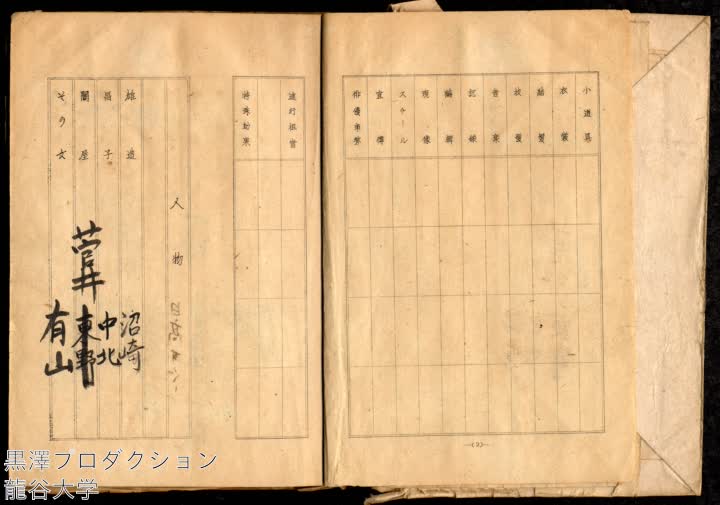 小道具
衣裳
結髪
技髪
音楽
記録
編輯
現像
スチール
宣傳
俳優事務
(2)
進行担當
特殊効果
人物
雄造
昌子
闇屋
その女
沼崎
中北
菅井
東野
有山
黒澤プロダクション
龍谷大学